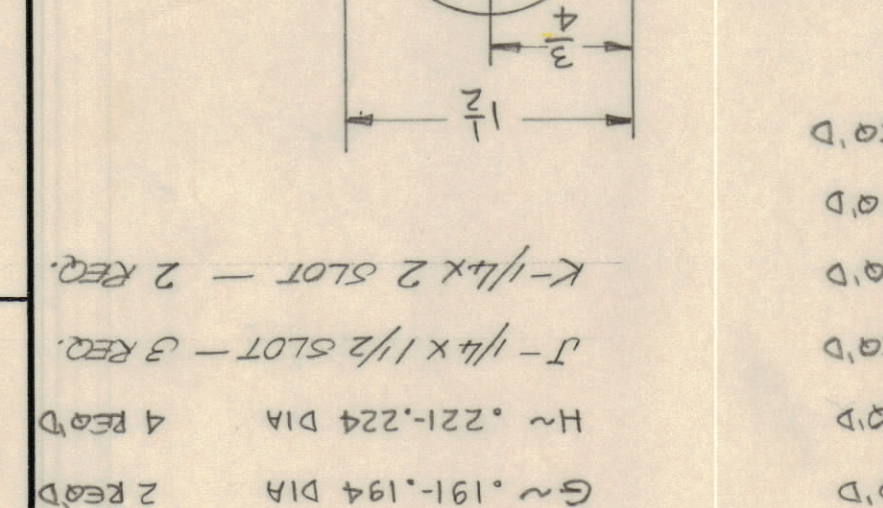 G~ .191-.194 DIA 2 REQ'D
H~ .221-.224 DIA 4 REQ'D
J - 1/4 x 1 1/2 SLOT - 3 REQ.
K - 1/4 x 2 SLOT - 2 REQ.
1 1/2
3/4
Q'D
Q'D
Q'D
Q'D
Q'D
EQ'D